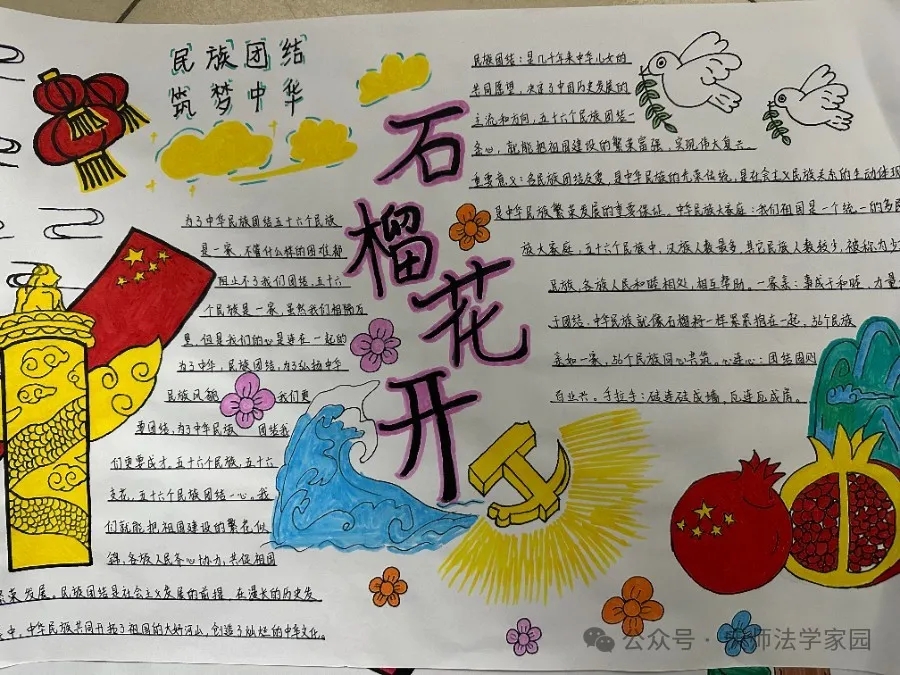 民族团结
筑梦中华
石榴花开
为了中华民族团结五十六个民族
是一家,不管什么样的困难都
阻止不了我们团结,五十六
个民族是一家,虽然我们相隔万
里,但是我们的心是连在一起的
为了中华,民族团结,为了弘扬中华
民族风貌 我们更
要团结,为了中华民族 团结我
们更要成才。五十六个民族,五十六
支花,五十六个民族团结一心。我
们就能把祖国建设的繁花似
锦,各族人民齐心协力,共促祖国
繁荣发展。民族团结是社会主义发展的前提,在漫长的历史发
中,中华民族共同开拓了祖国的大好河山,创造了灿烂的中华文化。
民族团结:是几千年来中华儿女的
共同愿望,决定了中国历史发展的
主流和方向,五十六个民族团结一
条心,就能把祖国建设的繁荣富强,实现伟大复兴。
重要意义:各民族团结友爱,是中华民族的光荣传统,是在会主义民族关系的生动体现
是中华民族繁荣发展的重要保证。中华民族大家庭:我们祖国是一个统一的多民
族大家庭,五十六个民族中,汉族人数最多,其它民族人数较少,被称为少
民族,各族人民和睦相处,相互帮助。一家亲:事成于和睦,力量
于团结,中华民族就像石榴籽一样紧紧抱在一起,56个民族
亲如一家,56个民族同心共筑。心连心:团结固则
百业兴。手拉手:砖连砖成墙,瓦连瓦成房。
公众号·师法学家园